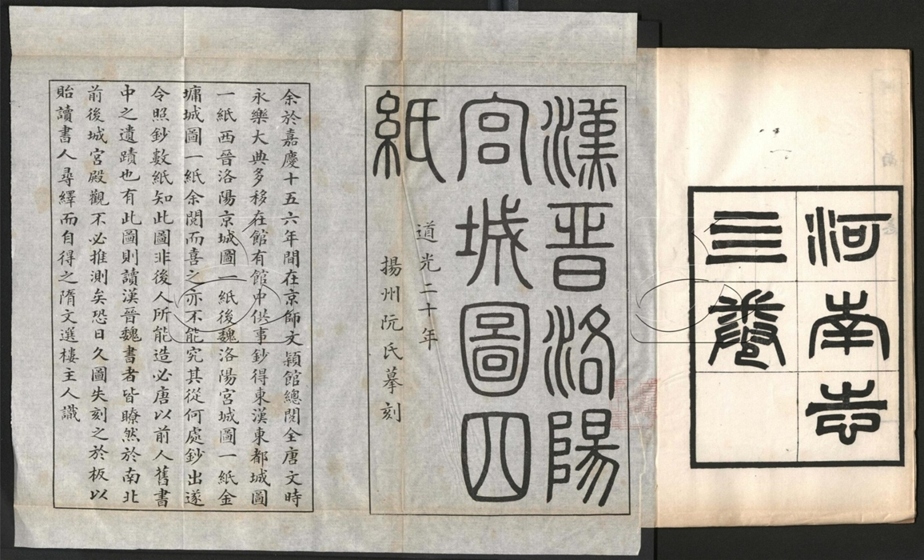 河南志
三卷
漢晉洛陽
宮城圖四
紙
道光二十年
揚州阮氏摹刻
余於嘉慶十五六年間在京師文穎館總閱全唐文時
永樂大典多移在館有館中供事鈔得東漢東都城圖
一紙西晉洛陽京城圖一紙後魏洛陽宮城圖一紙金
墉城圖一紙余閱而喜之亦不能究其從何處鈔出遂
令照鈔數紙知此圖非後人所能造必唐以前人舊書
中之遺蹟也有此圖則讀漢晉魏書者皆瞭然於南北
前後城宮殿觀不必推測矣恐日久圖失刻之於板以
貽讀書人尋繹而自得之隋文選樓主人識